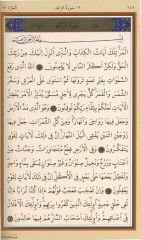 سورة الرعد
بسم الله الرحمن الرحيم
المر تلك آيات الكتاب والذي أنزل إليك من ربك
الحق ولكن أكثر الناس لا يؤمنون الله الذي رفع
السموات بغير عمد ترونها ثم استوى على العرش وسخر
الشمس والقمر كل يجري لأجل مسمى يدبر الأمر يفصل
الآيات لعلكم بلقاء ربكم توقنون وهو الذي مد الأرض
وجعل فيها رواسي وأنهارا ومن كل الثمرات جعل فيها
زوجين اثنين يغشي الليل النهار إن في ذلك لآيات
لقوم يتفكرون وفي الأرض قطع متجاورات وجنات من
أعناب وزرع ونخيل صنوان وغير صنوان يسقى بماء واحد
ونفضل بعضها على بعض في الأكل إن في ذلك لآيات لقوم
يعقلون وإن تعجب فعجب قولهم أءذا كنا ترابا أءنا
لفي خلق جديد أولئك الذين كفروا بربهم وأولئك الأغلال
في أعناقهم وأولئك أصحاب النار هم فيها خالدون